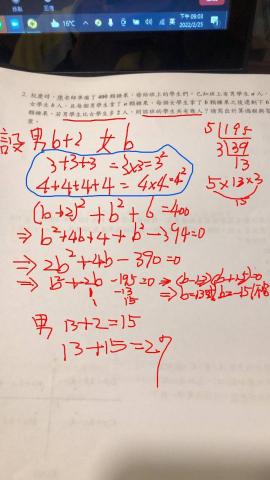 16°C 下午 09:03
2022/2/25
2. 校慶時,康老師準備了400顆糖果,發給班上的學生們,已知班上有男生a人,
女學生b人,且每個男學生拿了a顆糖果,每個女學生拿了b顆糖果之後還剩下b
顆糖果,若男學生比女學生多2人,則該班的學生共有幾人?請寫出計算過程與答
案。
設男b+2 女b
3+3+3 = 3x3=3²
4+4+4+4 = 4x4=4²
5 195
3 39
13
5x13x3
15
(b+2)²+b²+b=400
⇒ b²+4b+4+b²-394=0
⇒ 2b²+4b-390=0
-195=0
⇒ (b-13)(b+15)=0
-13
15
⇒ b=13或b=-15
男 13+2=15
13+15=27